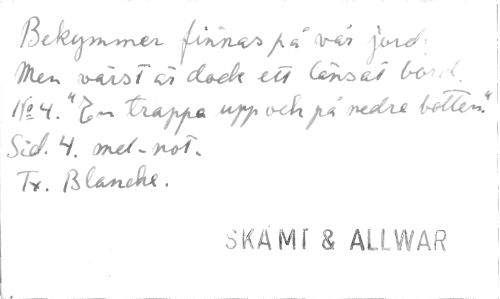 Bekymmer finnas på vår jord,
Men värst är dock ett länsat bord.
No 4. "En trappa upp och på nedre botten."
Sid. 4. mel-not.
Tx. Blanche.
SKÄMT & ALLWAR